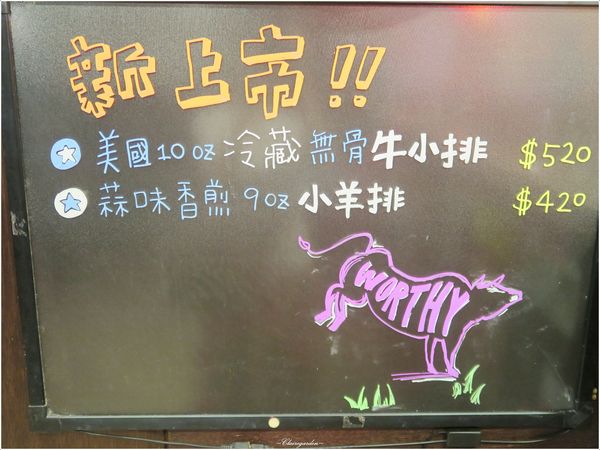 新上市!!
美國10oz冷藏無骨牛小排 $520
蒜味香煎9oz小羊排 $420
WORTHY
~Clairegarden~